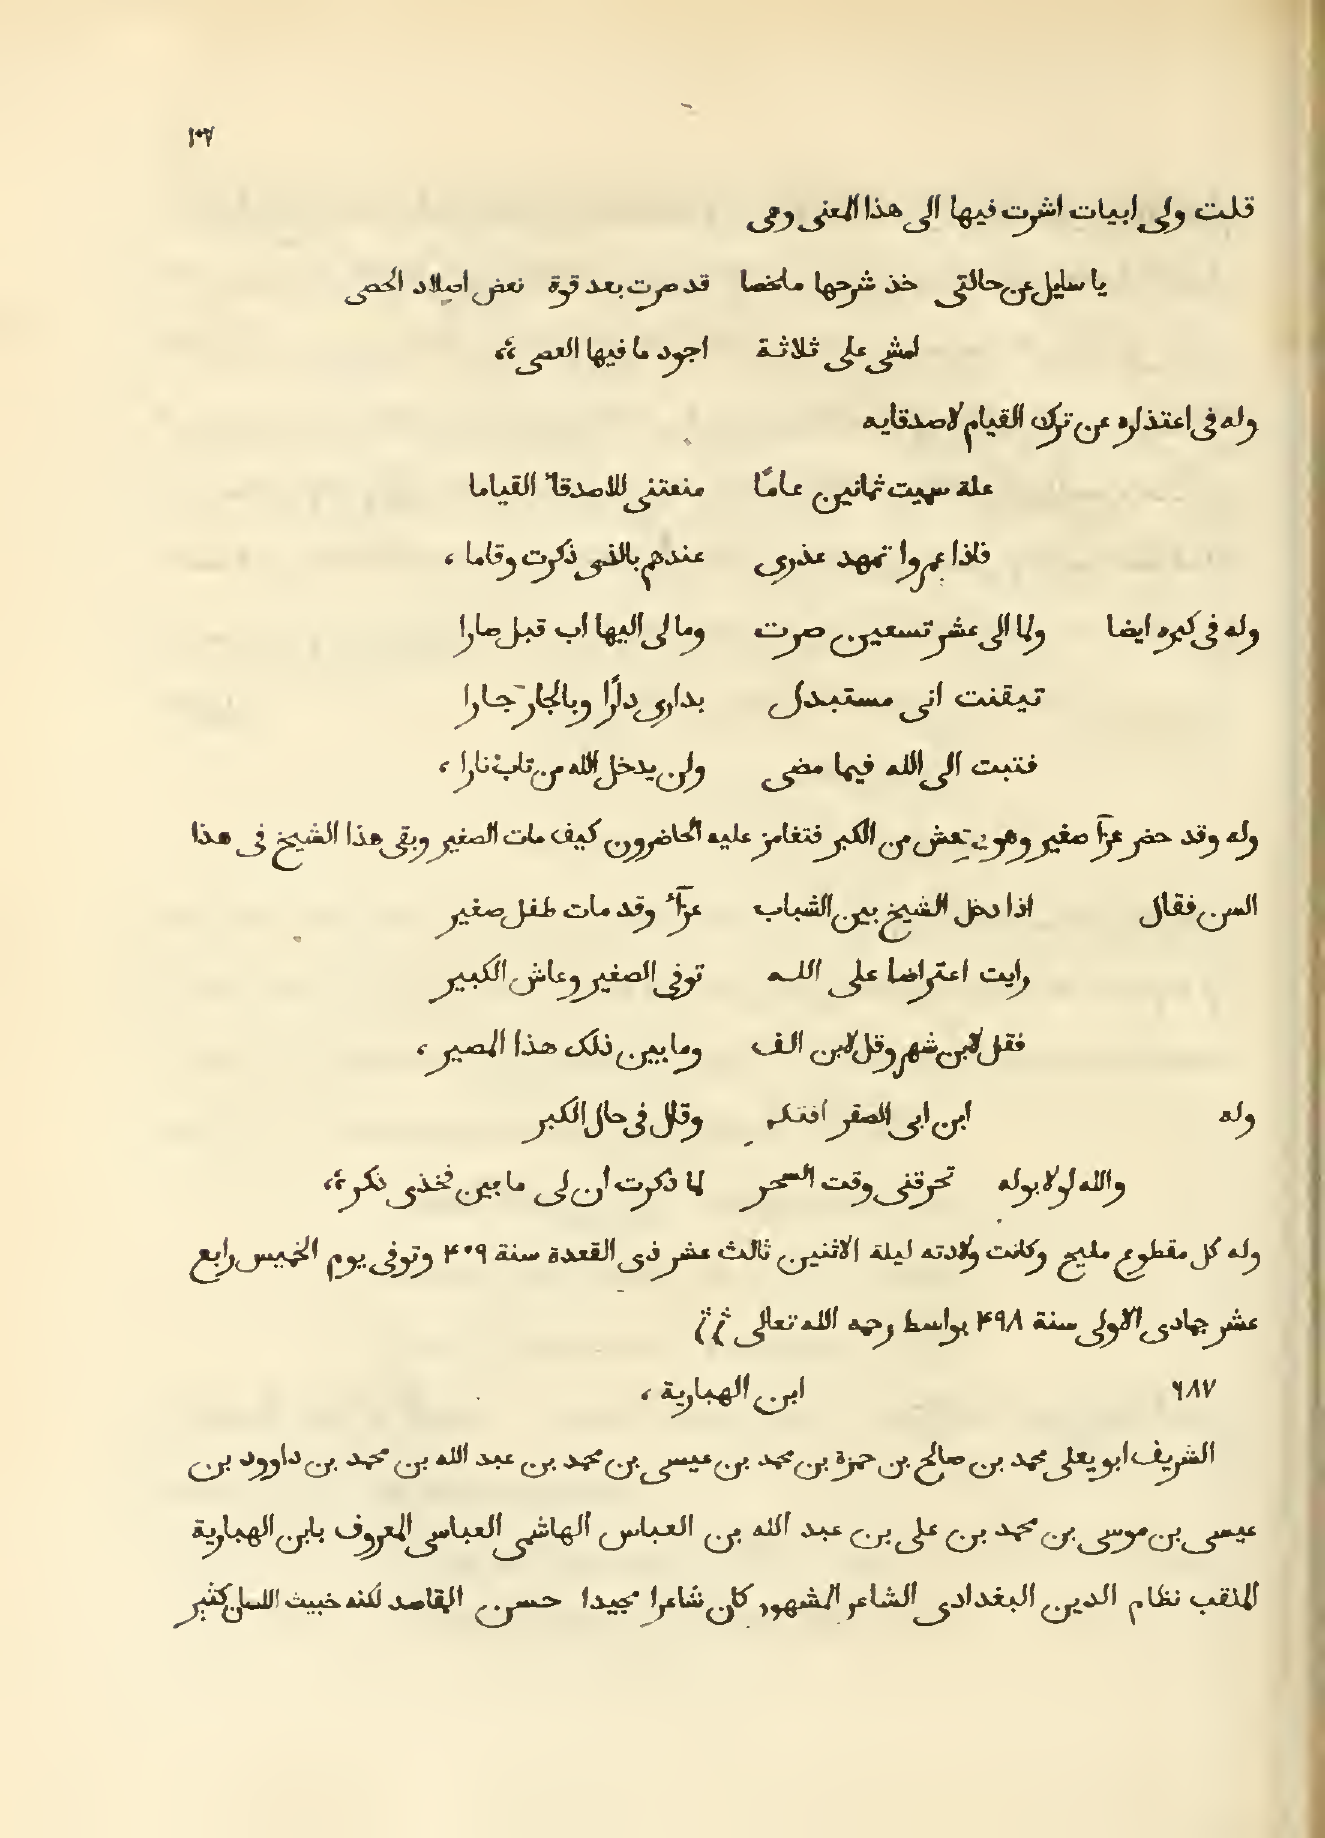 ١٠٧
قلت ولى ابيات اشرت فيها الى هذا المعنى وهى
يا سايلى عن حالتى خذ شرحها ملخصا قد صرت بعد قوة نعض اصلاد الحصى
امشى على ثلاثة اجود ما فيها العصى
وله فى اعتذاره عن ترك القيام لاصدقايه
علة سميت ثمانين عامًا منعتنى للاصدقا القياما
فاذا عمروا تمهد عذرى عندهم بالذى ذكرت وقاما ،
وله فى كبره ايضا ولما الى عشر تسعين صرت وما لى اليها اب قبل صارا
تيقنت انى مستبدل بدارى دارًا وبالجار جارا
فتبت الى الله فيما مضى ولن يدخل الله من تاب نارا ،
وله وقد حضر عزآ صغير وهو يرتعش من الكبر فتغامز عليه الحاضرون كيف مات الصغير وبقى هذا الشيخ فى هذا
السن فقال اذا دخل الشيخ بين الشباب عزآء وقد مات طفل صغير
رايت اعتراضا على الله توفى الصغير وعاش الكبير
فقل لابن شهر وقل لابن الف وما بين ذلك هذا المصير ،
وله ابن ابى الصقر افتكر وقال فى حال الكبر
والله لولا بوله تحرقنى وقت السحر لما ذكرت ان لى ما بين فخذى ذكر
وله كل مقطوع مليح وكانت ولادته ليلة الاثنين ثالث عشر ذى القعدة سنة ۴۰۹ وتوفى يوم الخميس رابع
عشر جمادى الاولى سنة ۴۹۸ بواسط رحمه الله تعالى
٦٨٧ ابن الهبارية ،
الشريف ابو يعلى محمد بن صالح بن حمزة بن محمد بن عيسى بن محمد بن عبد الله بن محمد بن داوود بن
عيسى بن موسى بن محمد بن على بن عبد الله بن العباس الهاشمى العباسى المعروف بابن الهبارية
الملقب نظام الدين البغدادى الشاعر المشهور كان شاعرا مجيدا حسن المقاصد لكنه خبيث اللسان كثير